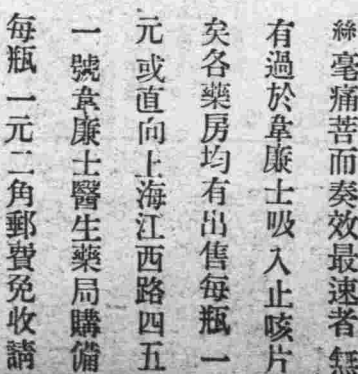 絲毫痛苦而奏效最速者無
有過於韋廉士吸入止咳片
矣各藥房均有出售每瓶一
元或直向上海江西路四五
一號韋廉士醫生藥局購備
每瓶一元二角郵費免收請